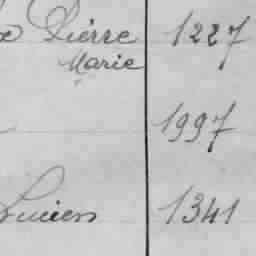 Pierre 1227
Marie
1997
Lucien 1341